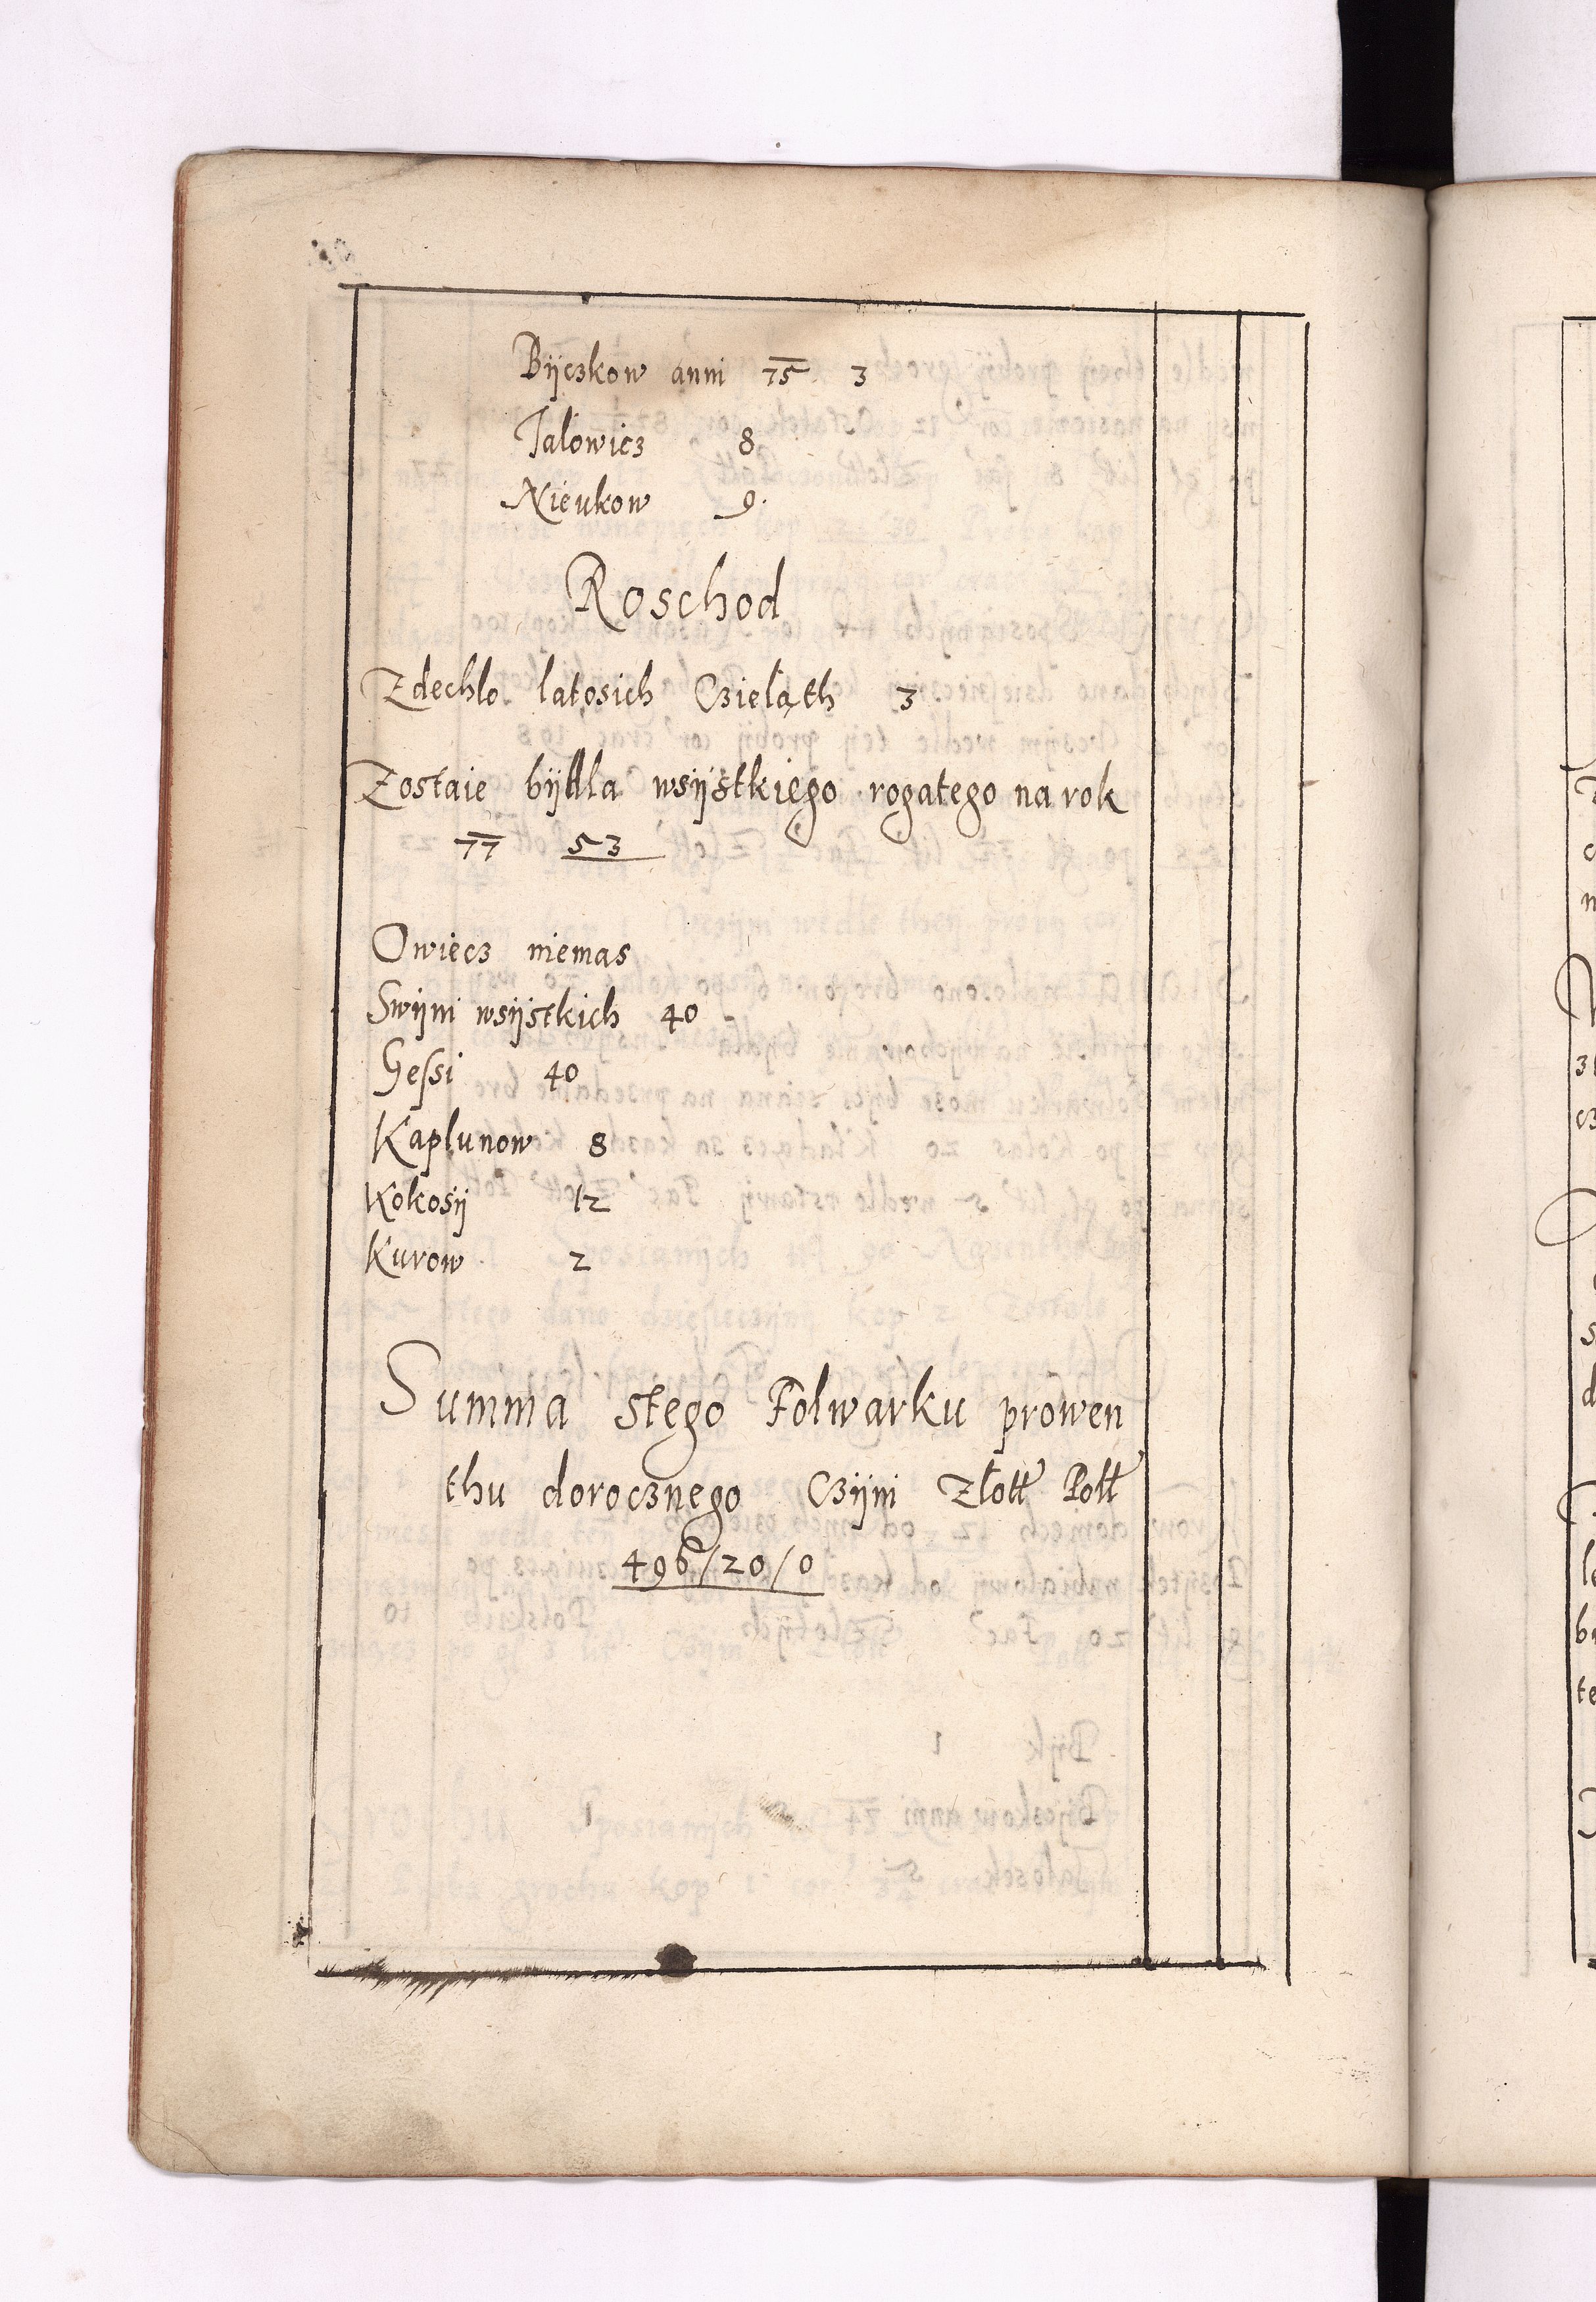 Bÿczkow anni 75 3
Jalowicz 8
Nieukow 9.
Roschod
Zdechlo latosich Czieląth 3
Zostaie bÿdla wsÿstkiego rogatego na rok
77 53
Owiecz niemas
Swÿni wsÿstkich 40
Gessi 40
Kaplunow 8
Kokosÿ 12
Kurow 2
Summa stego Folwarku prowen
thu dorocznego Czÿni Złott Poll
496/20/0